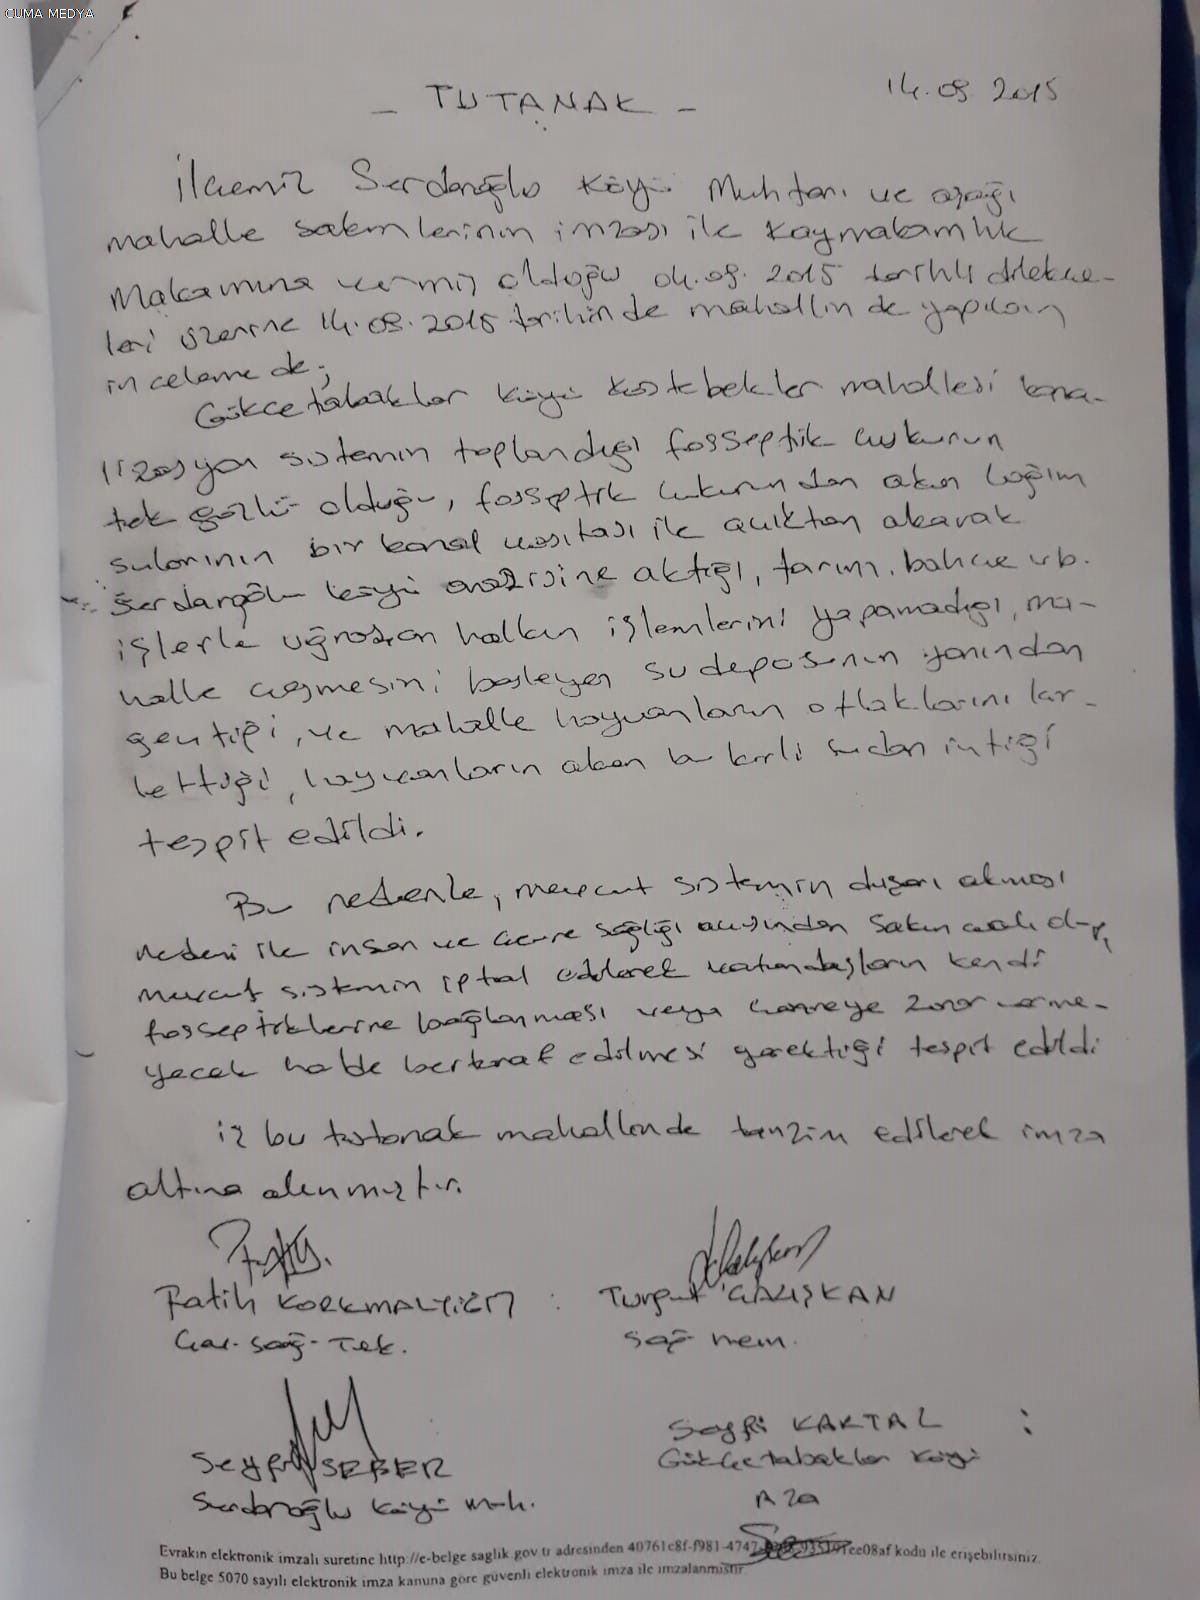 CUMA MEDYA
14.09.2015
- TUTANAK -
İlçemiz Serdaroğlu Köyü Muhtarı ve aşağı
mahalle sakinlerinin imzası ile Kaymakamlık
Makamına vermiş olduğu 04.09.2015 tarihli dilekçe-
leri üzerine 14.09.2015 tarihinde mahallinde yapılan
incelemede;
Gökçetabaklar köyü Köstebekler mahallesi kana-
lizasyon sistemin toplandığı fosseptik çukurun
tek gözlü olduğu, fosseptik çukurundan akan lağım
sularının bir kanal vasıtası ile açıktan akarak
Serdaroğlu köyü arazisine aktığı, tarım, bahçe vb.
işlerle uğraşan halkın işlemlerini yapamadığı, ma-
halle çeşmesini besleyen su deposunun yanından
geçtiği, ve mahalle hayvanların otlaklarını kir-
lettiği, hayvanların akan bu kirli sudan içtiği
tespit edildi.
Bu nedenle, mevcut sistemin dışarı akması
nedeni ile insan ve çevre sağlığı açısından sakıncalı olup,
mevcut sistemin iptal edilerek vatandaşların kendi
fosseptiklerine bağlanması veya çevreye zarar verme-
yecek halde bertaraf edilmesi gerektiği tespit edildi
iş bu tutanak mahallinde tanzim edilerek imza
altına alınmıştır.
Fatih KORKMAZYİĞİT : Turgut ÇALIŞKAN
Çev. Sağ. Tek. Sağ. mem.
Seyfi SEBER Seyfi KARTAL :
Serdaroğlu Köyü Muh. Gökçetabaklar Köyü
Aza
Evrakın elektronik imzalı suretine http://e-belge.saglik.gov.tr adresinden 40761c8f-f981-4747- ee08af kodu ile erişebilirsiniz.
Bu belge 5070 sayılı elektronik imza kanuna göre güvenli elektronik imza ile imzalanmıştır.